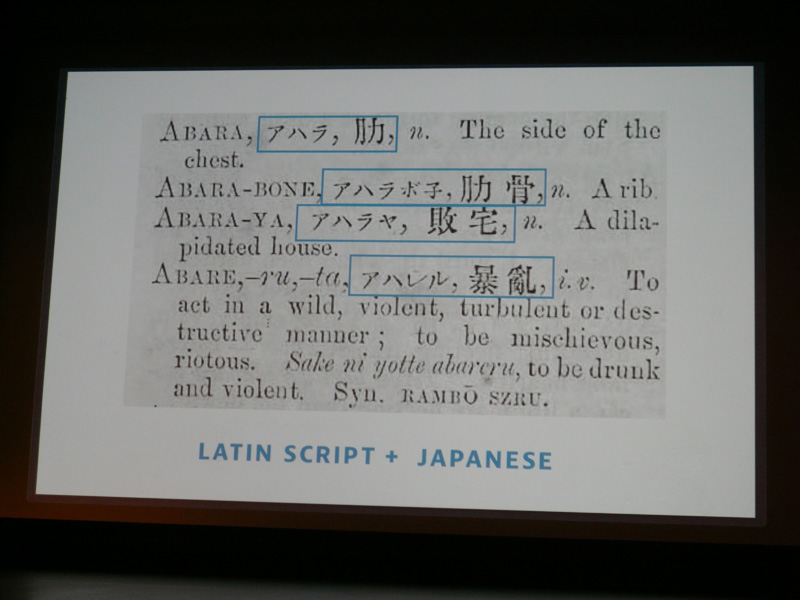 ABARA, アハラ, 肋, n. The side of the
chest.
ABARA-BONE, アハラボ子, 肋骨, n. A rib
ABARA-YA, アハラヤ, 敗宅, n. A dila-
pidated house.
ABARE,-ru,-ta, アハレル, 暴亂, i.v. To
act in a wild, violent, turbulent or des-
tructive manner; to be mischievous,
riotous. Sake ni yotte abareru, to be drunk
and violent. Syn. RAMBŌ SZRU.
LATIN SCRIPT + JAPANESE